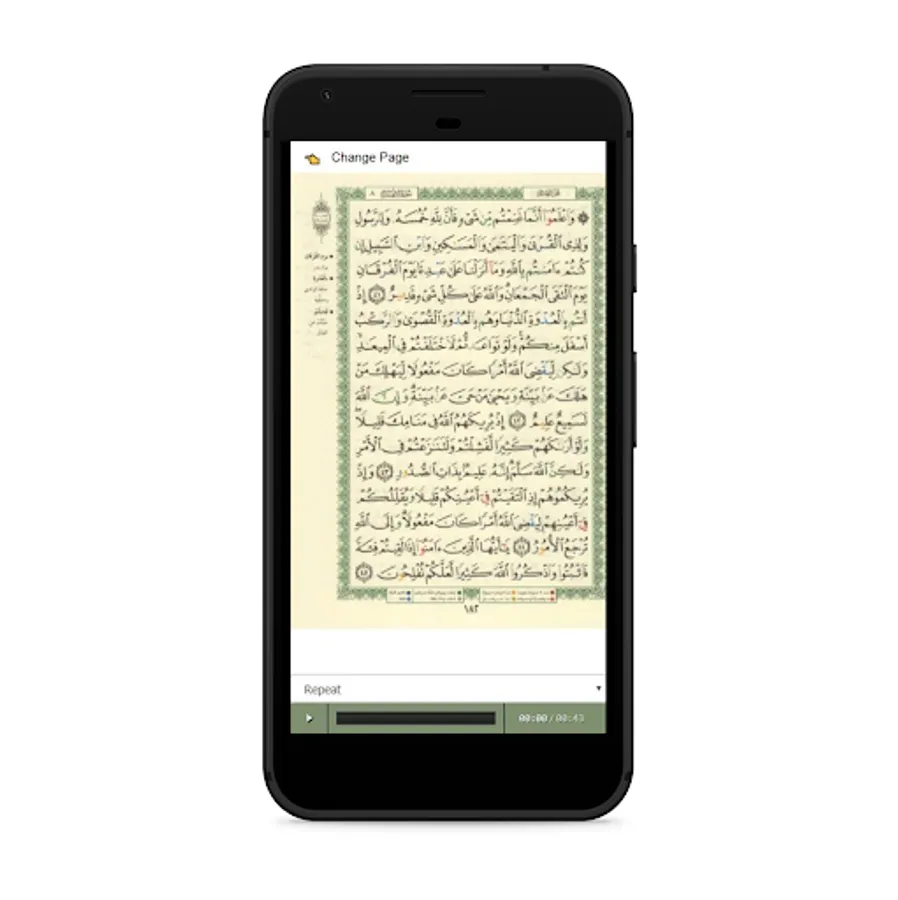 Change Page
۞ وَٱعْلَمُوٓا۟ أَنَّمَا غَنِمْتُم مِّن شَىْءٍ فَأَنَّ لِلَّهِ خُمُسَهُۥ وَلِلرَّسُولِ
وَلِذِى ٱلْقُرْبَىٰ وَٱلْيَتَٰمَىٰ وَٱلْمَسَٰكِينِ وَٱبْنِ ٱلسَّبِيلِ إِن
كُنتُمْ ءَامَنتُم بِٱللَّهِ وَمَآ أَنزَلْنَا عَلَىٰ عَبْدِنَا يَوْمَ ٱلْفُرْقَانِ
يَوْمَ ٱلْتَقَى ٱلْجَمْعَانِ وَٱللَّهُ عَلَىٰ كُلِّ شَىْءٍ قَدِيرٌ ٤١ إِذْ
أَنتُم بِٱلْعُدْوَةِ ٱلدُّنْيَا وَهُم بِٱلْعُدْوَةِ ٱلْقُصْوَىٰ وَٱلرَّكْبُ
أَسْفَلَ مِنكُمْ وَلَوْ تَوَاعَدتُّمْ لَٱخْتَلَفْتُمْ فِى ٱلْمِيعَٰدِ
وَلَٰكِن لِّيَقْضِىَ ٱللَّهُ أَمْرًا كَانَ مَفْعُولًا لِّيَهْلِكَ مَنْ
هَلَكَ عَنۢ بَيِّنَةٍ وَيَحْيَىٰ مَنْ حَىَّ عَنۢ بَيِّنَةٍ وَإِنَّ ٱللَّهَ
لَسَمِيعٌ عَلِيمٌ ٤٢ إِذْ يُرِيكَهُمُ ٱللَّهُ فِى مَنَامِكَ قَلِيلًا
وَلَوْ أَرَىٰكَهُمْ كَثِيرًا لَّفَشِلْتُمْ وَلَتَنَٰزَعْتُمْ فِى ٱلْأَمْرِ
وَلَٰكِنَّ ٱللَّهَ سَلَّمَ إِنَّهُۥ عَلِيمٌۢ بِذَاتِ ٱلصُّدُورِ ٤٣ وَإِذْ
يُرِيكُمُوهُمْ إِذِ ٱلْتَقَيْتُمْ فِىٓ أَعْيُنِكُمْ قَلِيلًا وَيُقَلِّلُكُمْ
فِىٓ أَعْيُنِهِمْ لِيَقْضِىَ ٱللَّهُ أَمْرًا كَانَ مَفْعُولًا وَإِلَى ٱللَّهِ
تُرْجَعُ ٱلْأُمُورُ ٤٤ يَٰٓأَيُّهَا ٱلَّذِينَ ءَامَنُوٓا۟ إِذَا لَقِيتُمْ فِئَةً
فَٱثْبُتُوا۟ وَٱذْكُرُوا۟ ٱللَّهَ كَثِيرًا لَّعَلَّكُمْ تُفْلِحُونَ ٤٥
١٨٢
Repeat
00:00 / 00:43